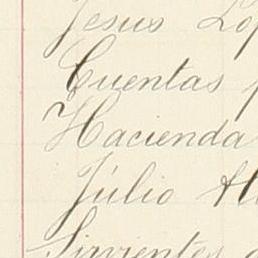 Jesus Lóp
Cuentas
Hacienda
Júlio
Sirvientes